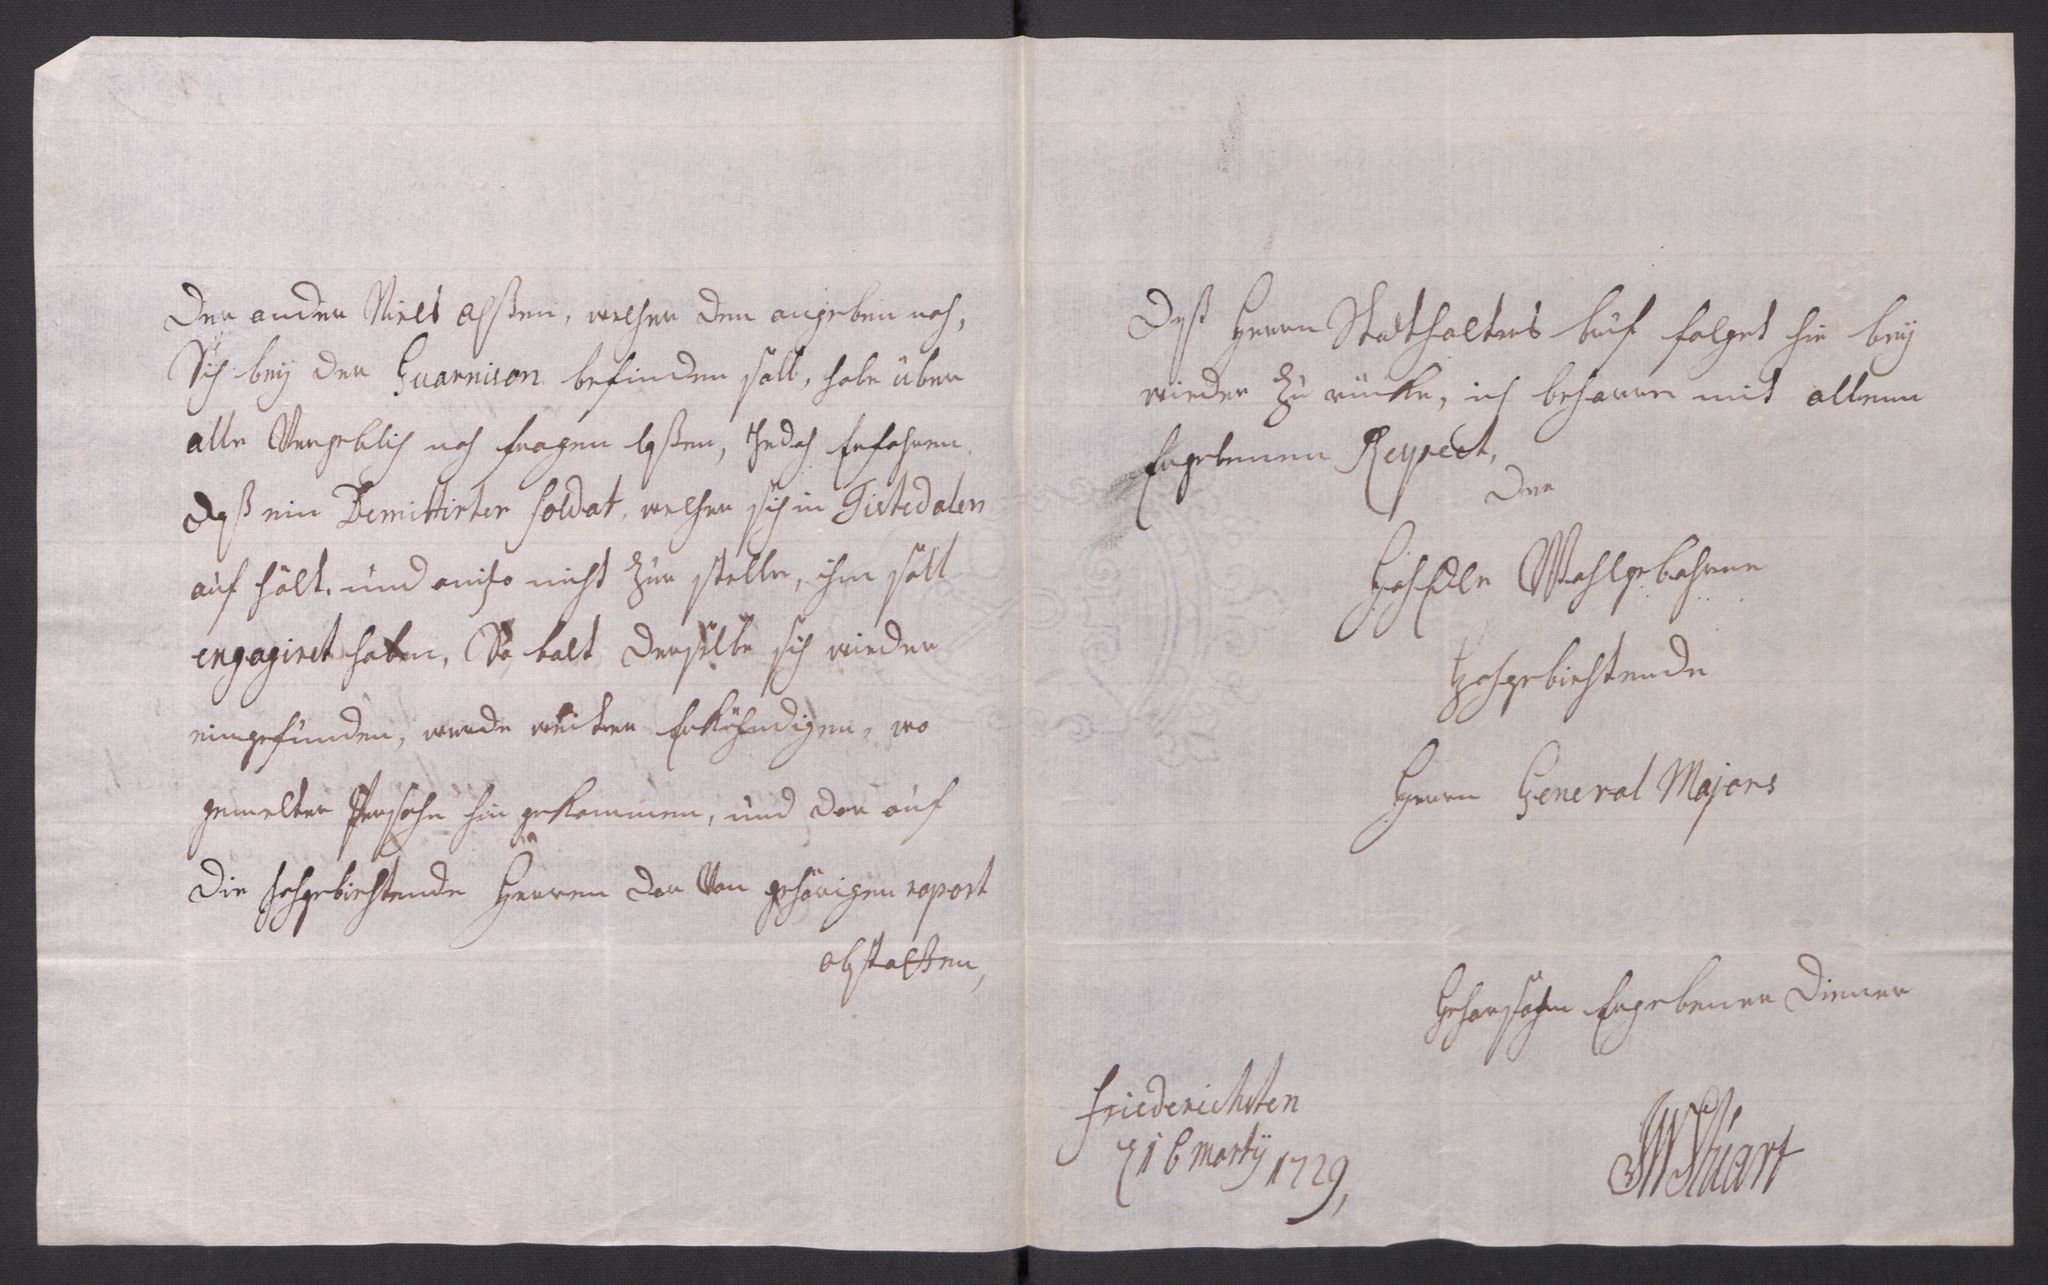 Der ander Niels Olßen, welcher dem angeben nach,
Sich bey der Guarnison befinden soll, habe über
alle Vergeblich nach fragen laßen, Jedoch Erfahren
daß ein Demittirter Soldat, welcher sich in Tistedalen
auf hält, und anitzo nicht zur stelle, ihm soll
engagiret haben, So balt derselbe sich wieder
eingefunden, werde weiter Erkühndigen, wo
gemelter Persohn hin gekommen, und dar auf
die hochgebiehtende Herren dar Von gehörigen raport
abstatten,
Daß Herrn Stadthalters brief folget hie bey
wieder zu rücke, ich beharre mit allem
Ergebenen Respect,
Der
HochEdle Wohlgebohrne
Hochgebiehtende
Herrn General Majors
Gehorsahm Ergebener Diener
Friederichsten
16 marty 1729,
Stuart